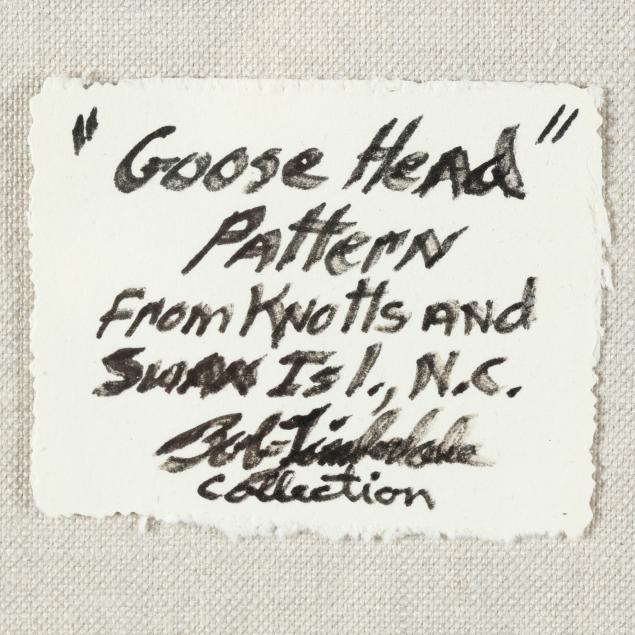 "Goose Head"
Pattern
From Knotts and
Swan Isl., N.C.
Bob Timberlake
Collection